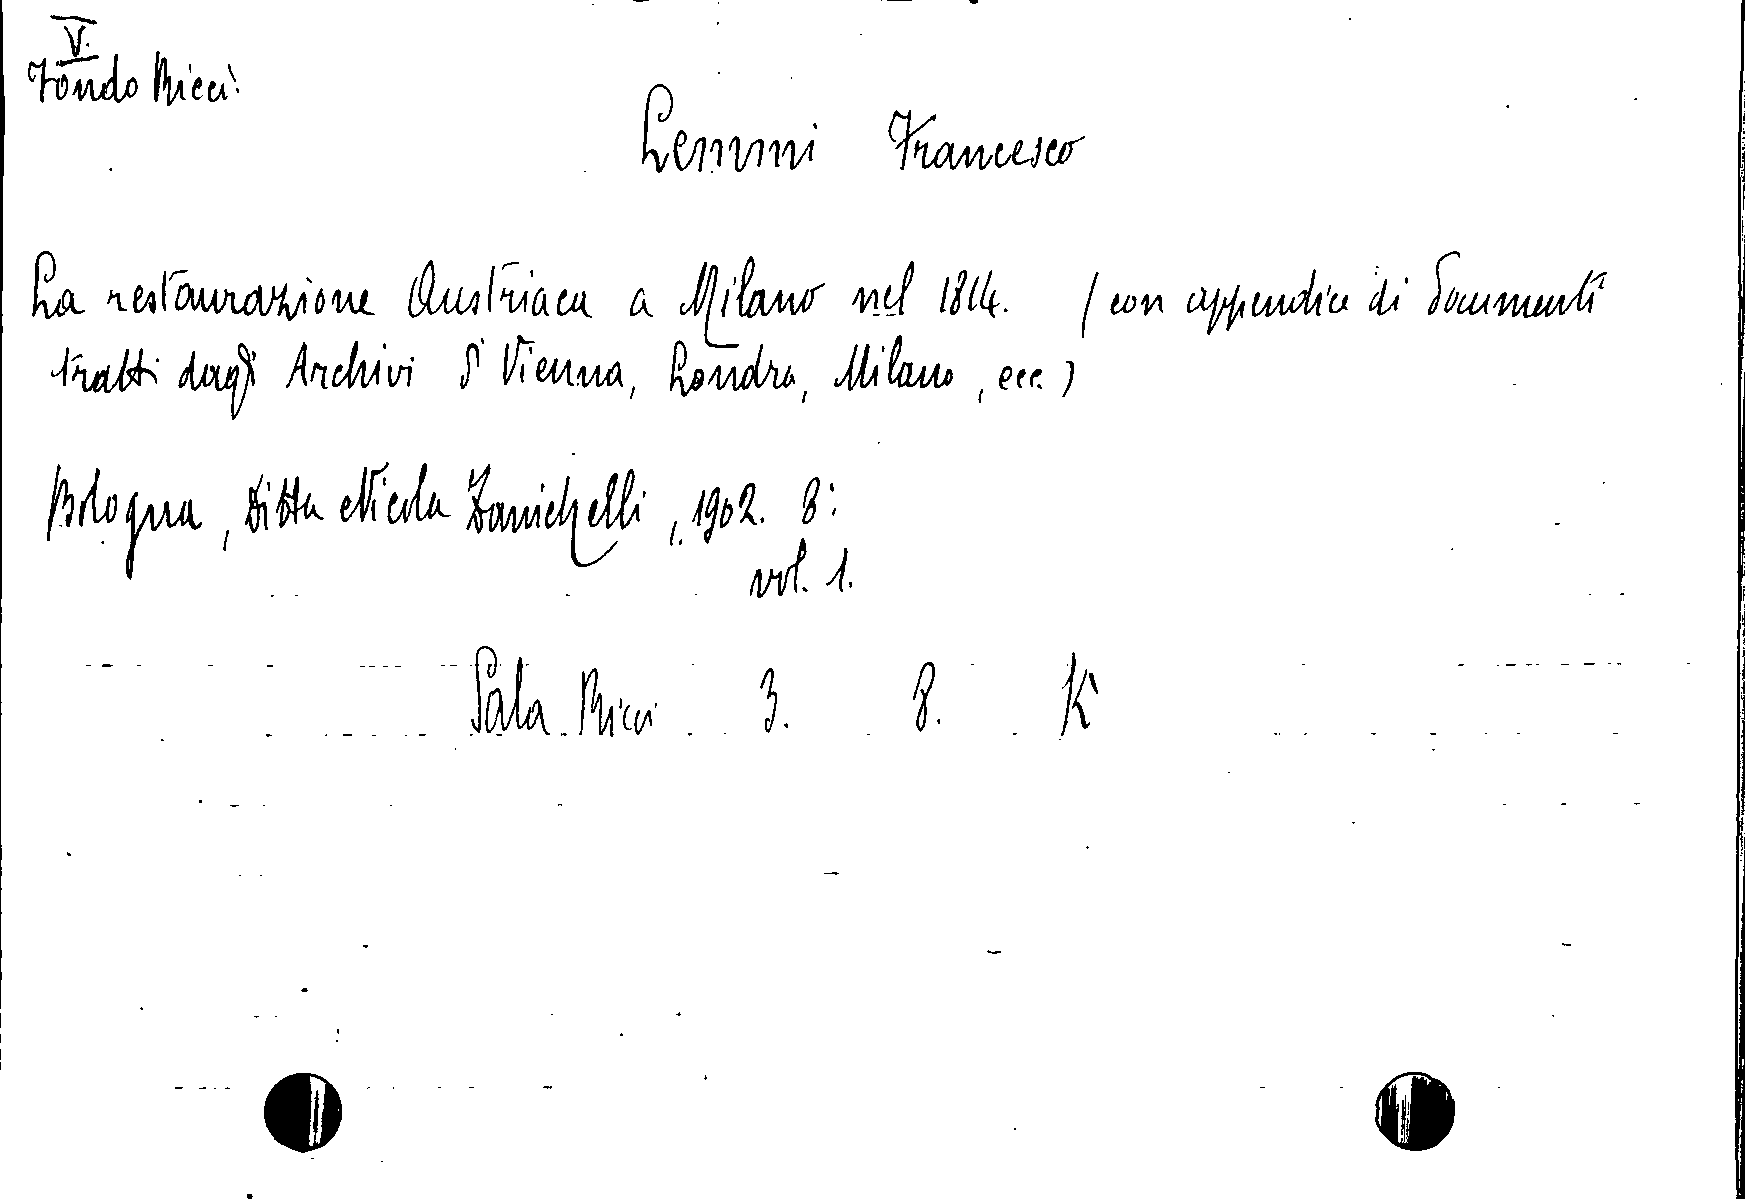 V.
Fondo Ricci
Lemmi Francesco
La restaurazione Austriaca a Milano nel 1814. (con appendice di Documenti
tratti dagli Archivi di Vienna, Londra, Milano, ecc.)
Bologna, Ditta Nicola Zanichelli, 1902. 8:
vol. 1.
Sala Ricci 3. 8. K